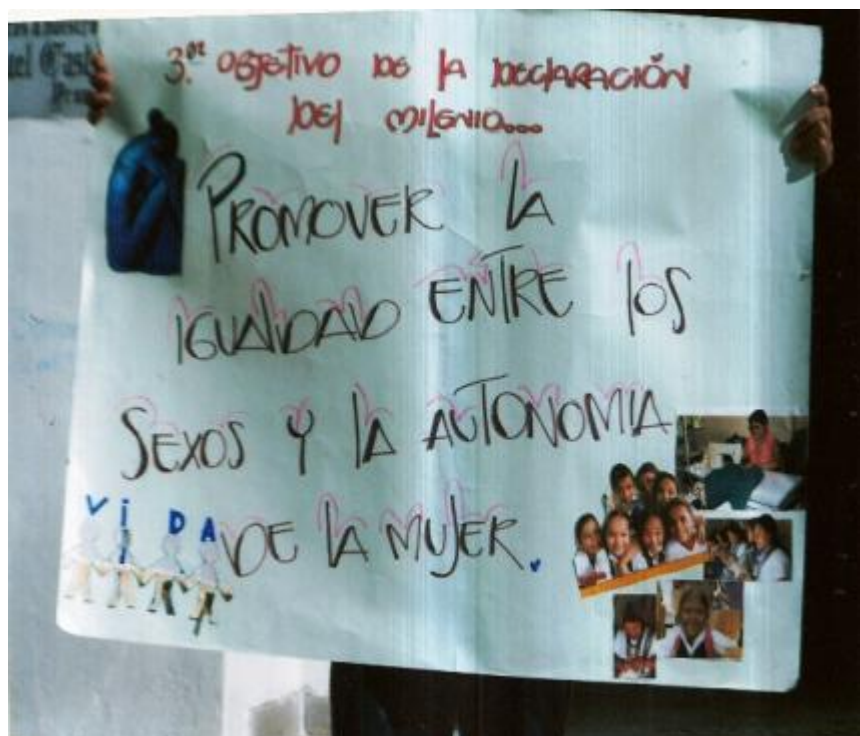 3.er OBJETIVO DE LA DECLARACIÓN
DEL MILENIO...
PROMOVER LA
IGUALDAD ENTRE LOS
SEXOS Y LA AUTONOMIA
DE LA MUJER.
VIDA